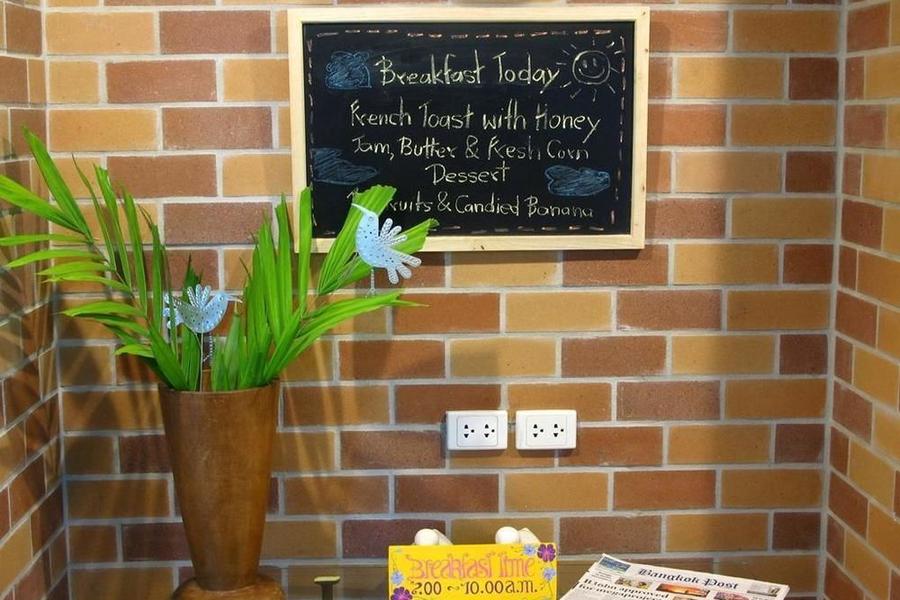 Breakfast Today
French Toast with Honey
Jam, Butter & Fresh Corn
Dessert
Fruits & Candied Banana
Breakfast Time
7.00 ~ 10.00 a.m.
Bangkok Post